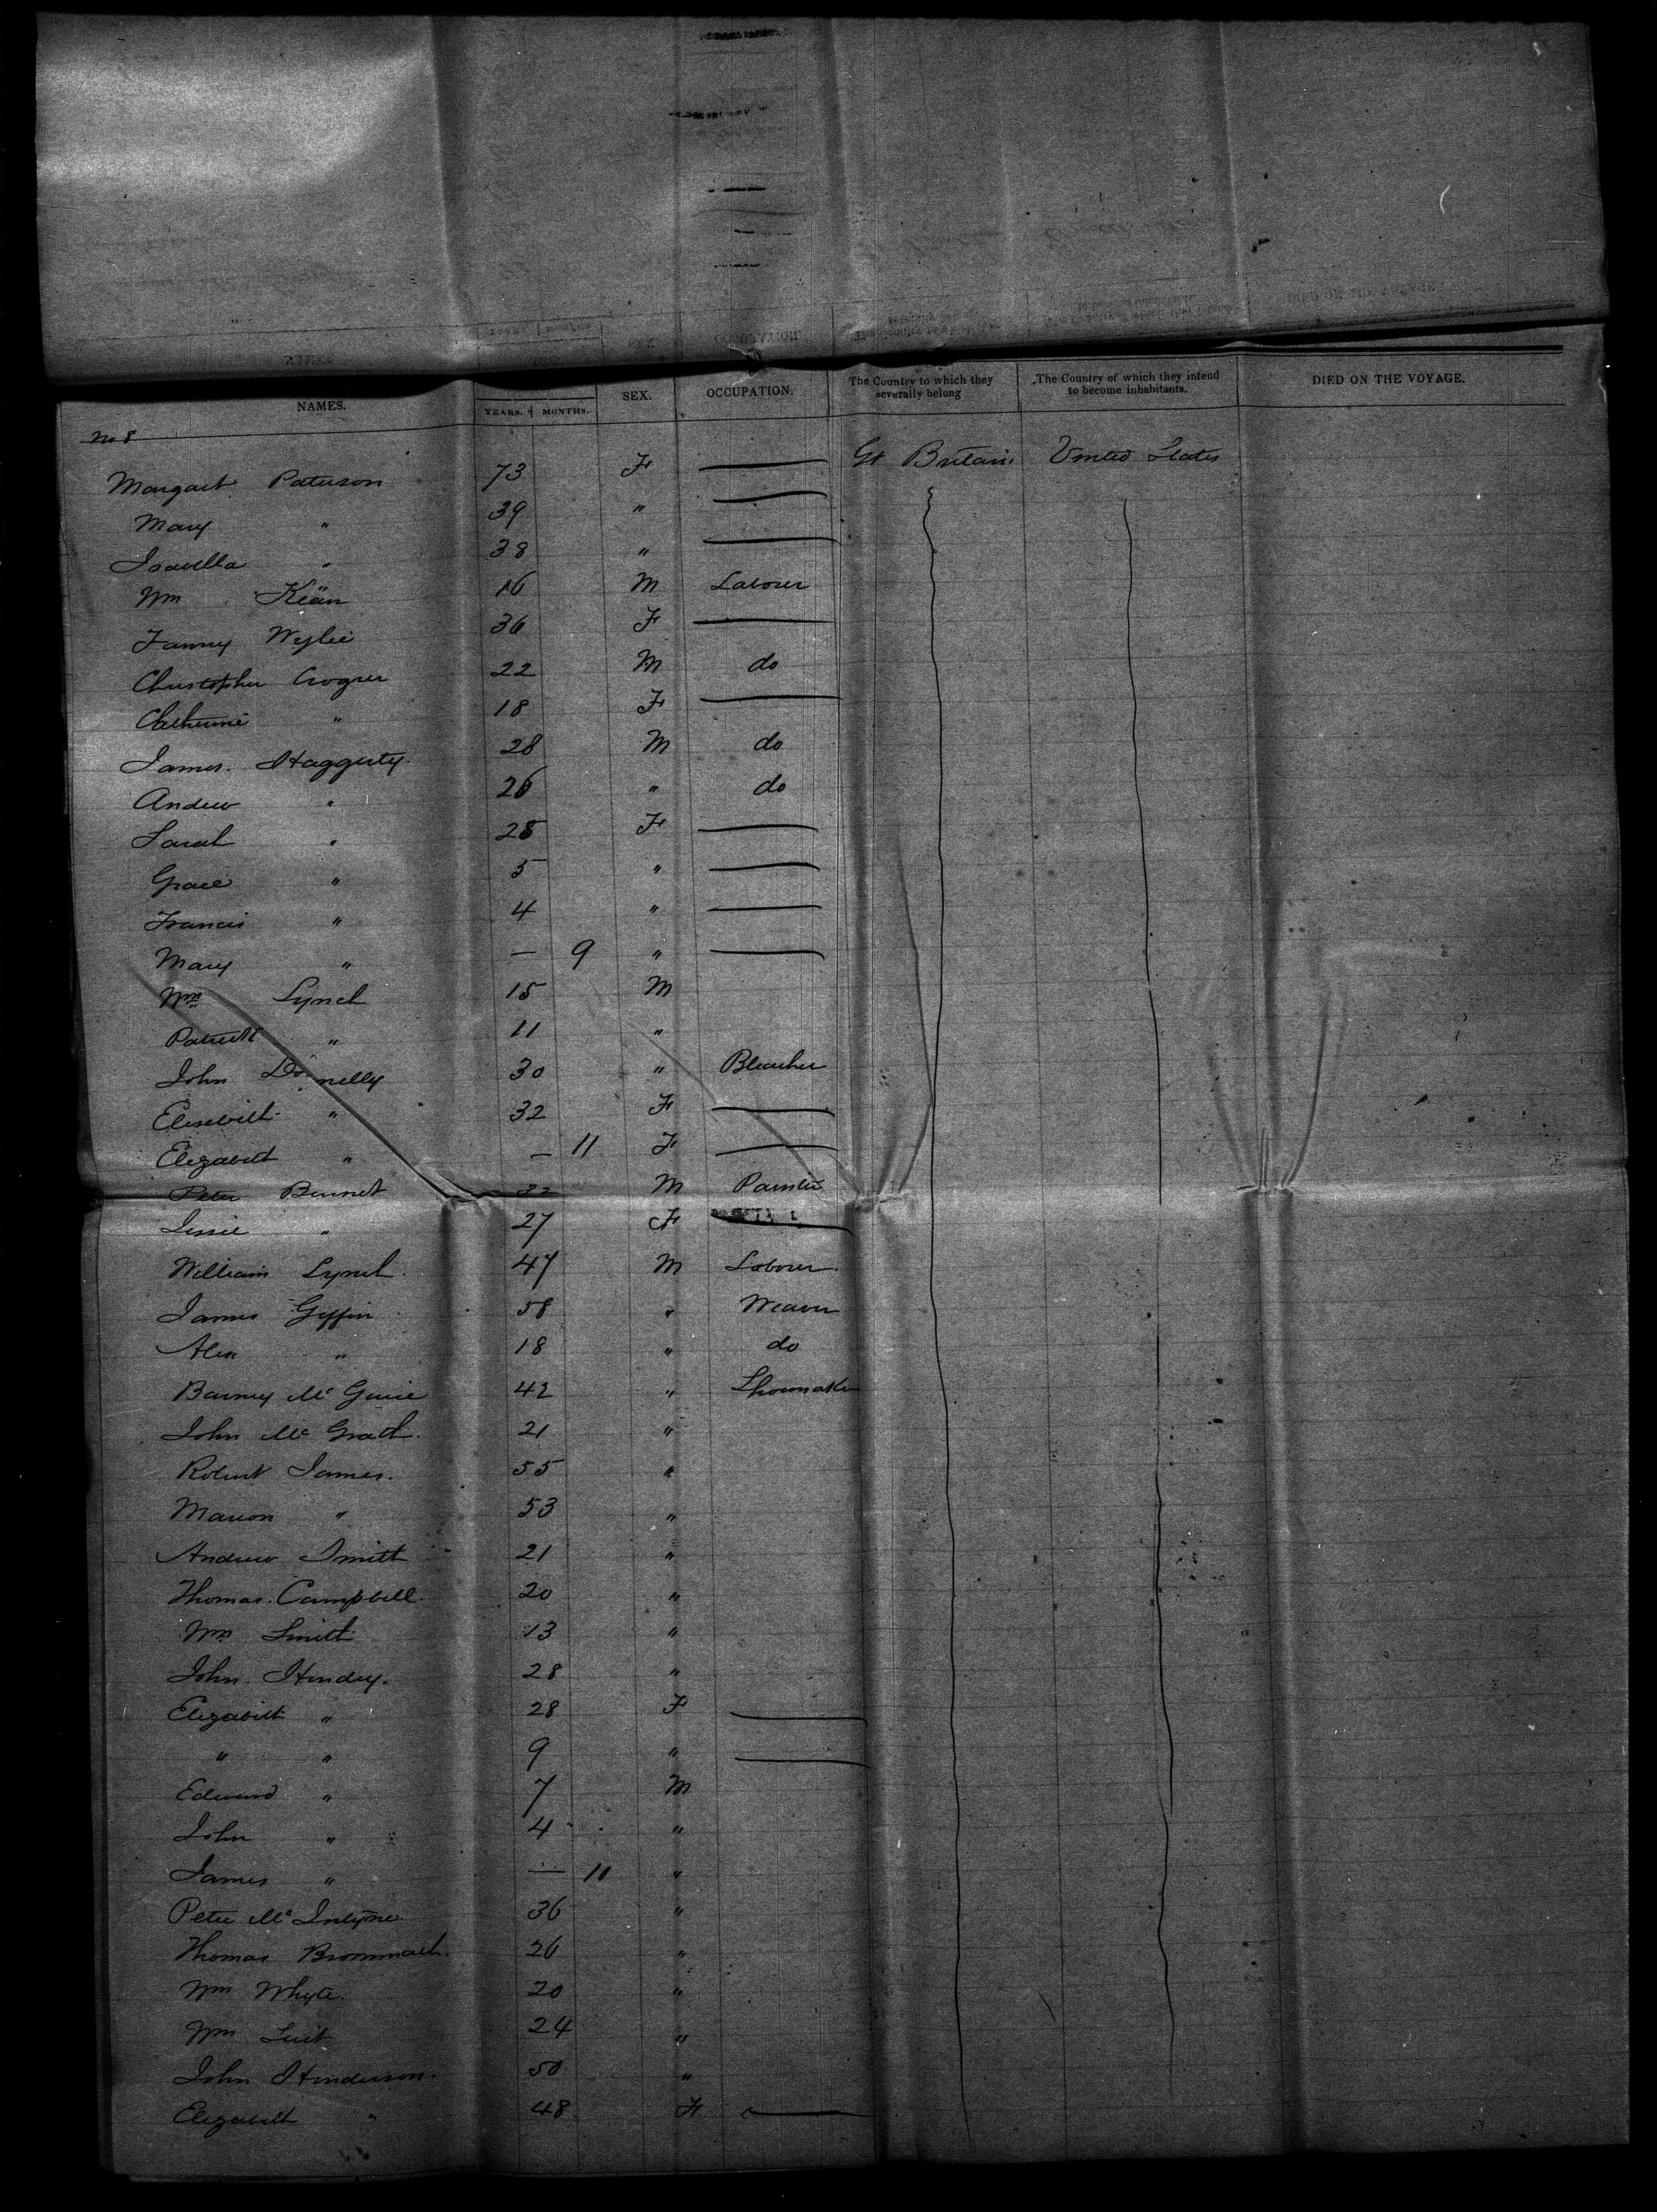 NAMES. YEARS. MONTHS. SEX. OCCUPATION. The Country to which they severally belong The Country of which they intend to become inhabitants. DIED ON THE VOYAGE.
No 8
Margaret Paterson 73 F — Gt Britain United States
Mary " 39 " —
Isabella " 38 " —
Wm Kean 16 M Labourer
Fanny Wylie 36 F —
Christopher 22 M do
Catherine " 18 F —
James Haggerty 28 M do
Andrew " 26 " do
Sarah " 25 F —
Grace " 5 " —
Francis " 4 " —
Mary " — 9 " —
Wm Lynch 15 M
Patrick " 11 "
John Donnelly 30 " Bleacher
Elisebeth " 32 F —
Elizabeth " — 11 F —
Peter M Painter
Jessie " 27 F —
William Lynch 47 M Labourer
James Giffin 58 " Weaver
Alex " 18 " do
Barney McGuire 42 " Shoemaker
John McGrath 21 "
Robert James 55 "
Marion " 53 "
Andrew Smith 21 "
Thomas Campbell 20 "
Wm Smith 13 "
John Hendry 28 "
Elizabeth " 28 F —
" " 9 " —
Edward " 7 M
John " 4 "
James " — 10 "
Peter McIntyre 36 "
Thomas 26 "
Wm Whyte 20 "
Wm 24 "
John Henderson 50 "
Elizabeth " 48 F —